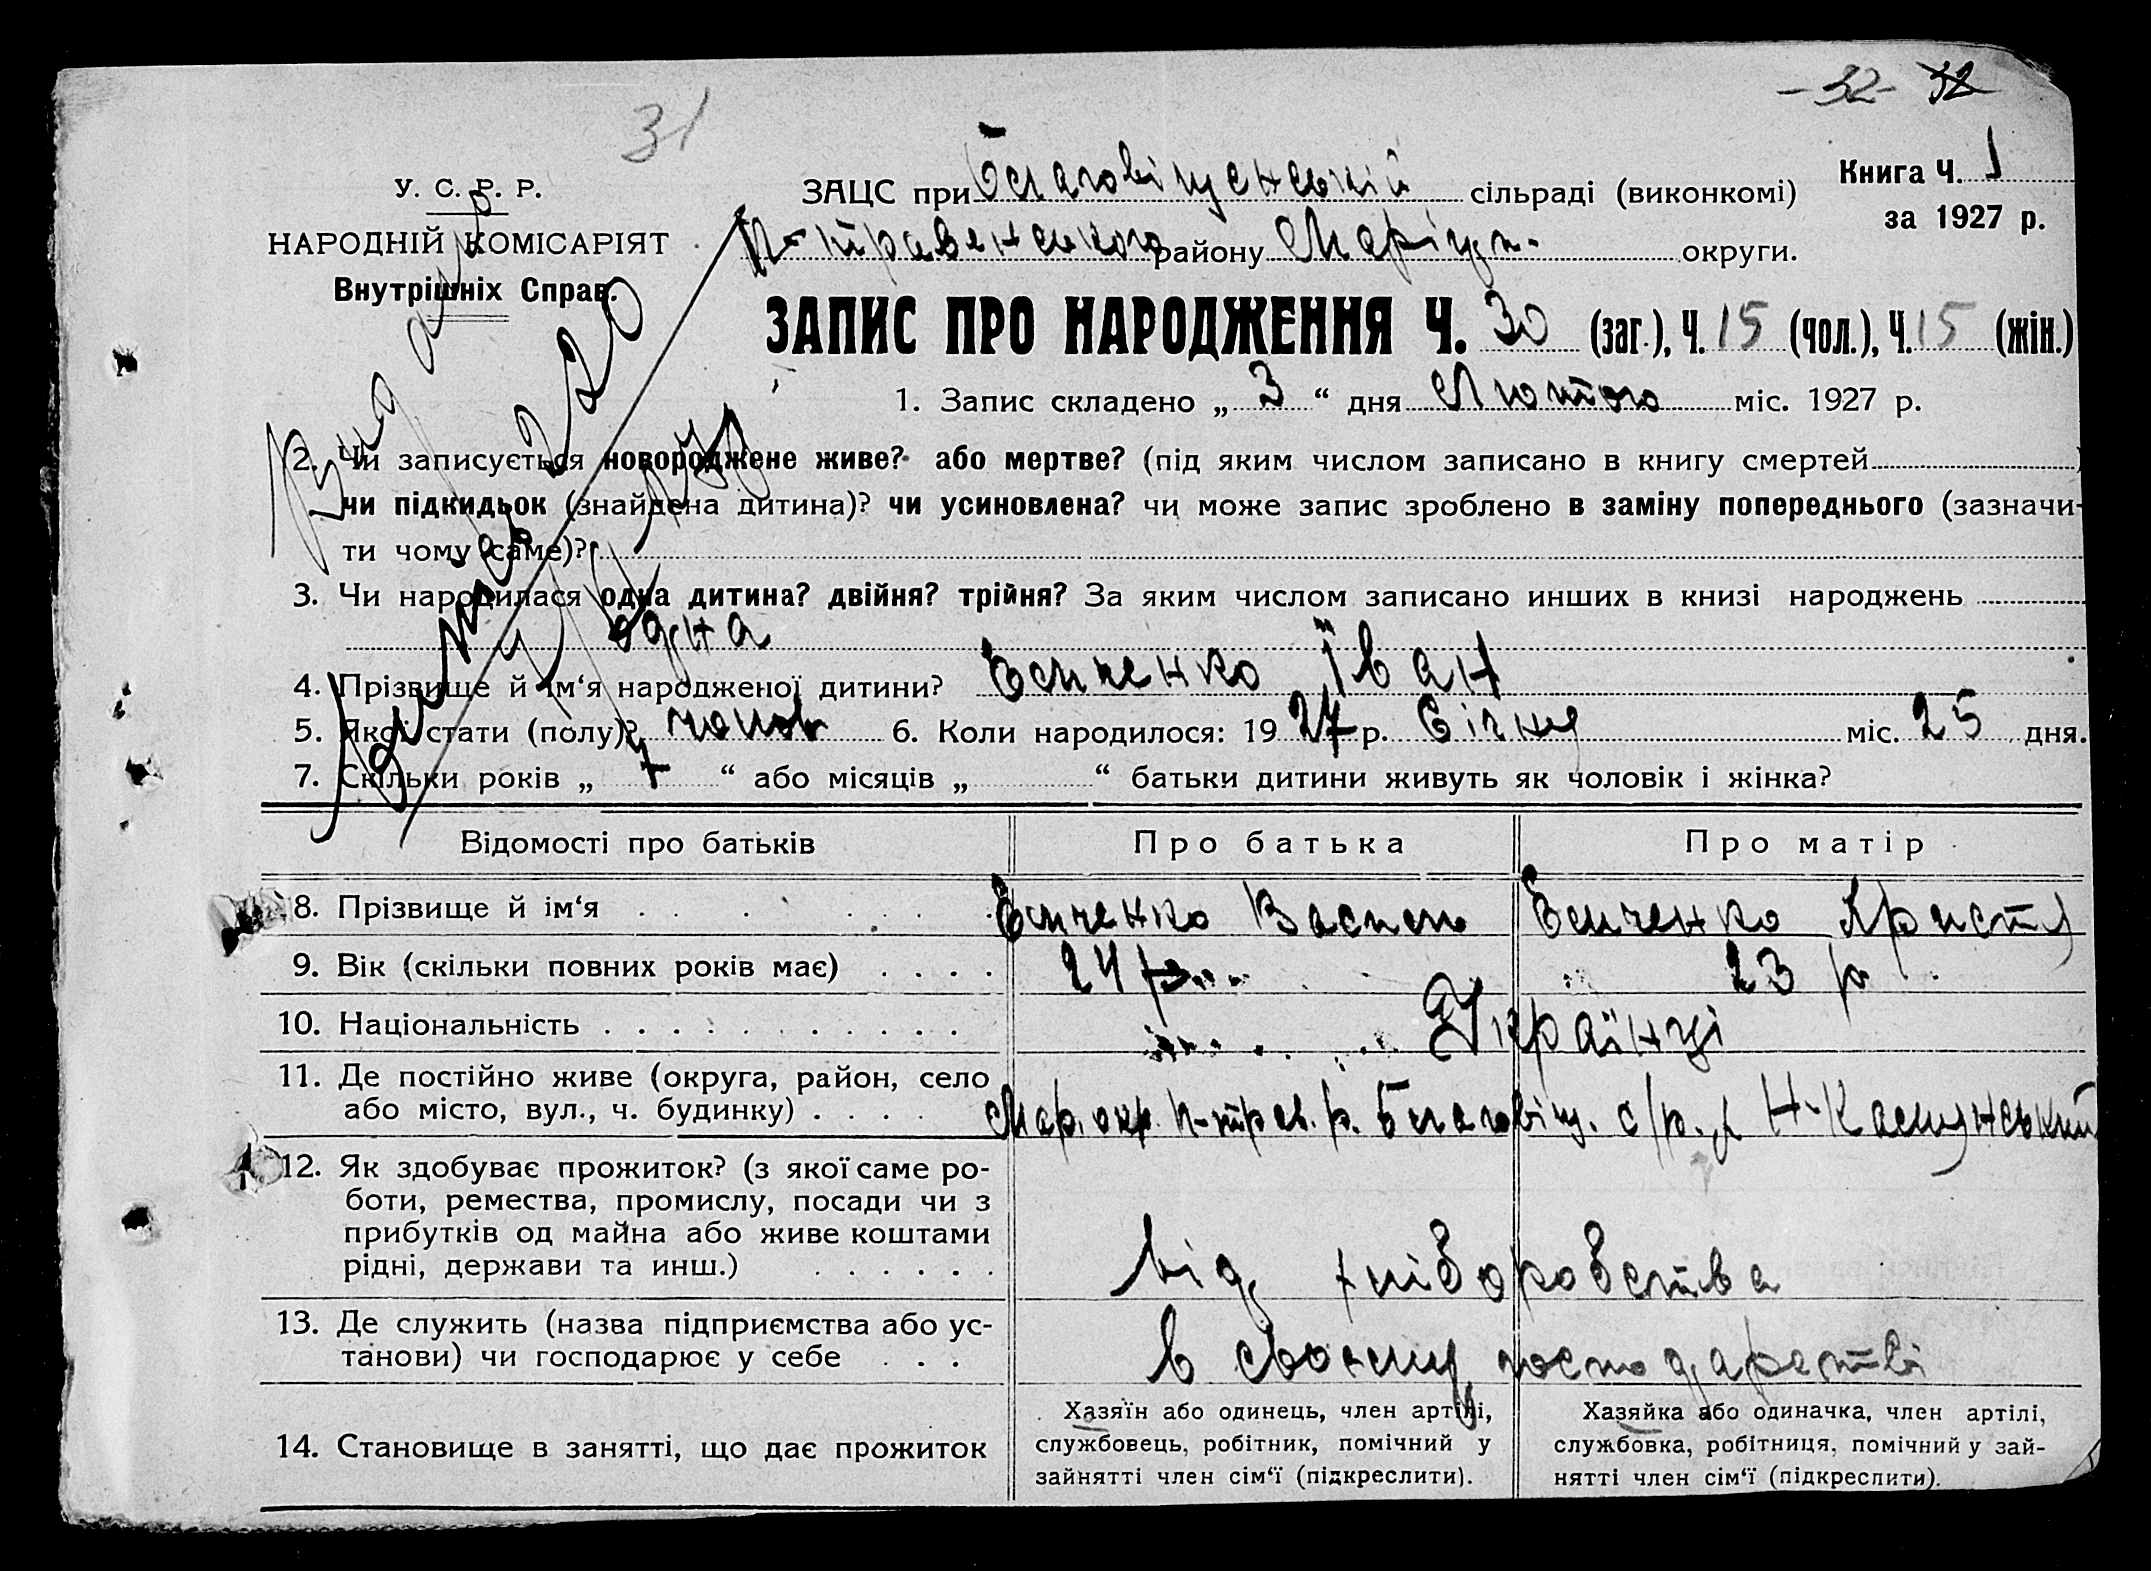 - 32 - 32
31
У. С. Р. Р.
НАРОДНІЙ КОМІСАРІЯТ
Внутрішніх Справ.
ЗАЦС при Благовіщенській сільраді (виконкомі)
Книга Ч. 1
за 1927 р.
району Маріуп. округи.
ЗАПИС ПРО НАРОДЖЕННЯ Ч. 30 (заг.), Ч. 15 (чол.), Ч. 15 (жін.)
1. Запис складено „ 3 “ дня Лютого міс. 1927 р.
2. Чи записується новороджене живе? або мертве? (під яким числом записано в книгу смертей )
чи підкидьок (знайдена дитина)? чи усиновлена? чи може запис зроблено в заміну попереднього (зазначи-
ти чому саме)?
3. Чи народилася одна дитина? двійня? трійня? За яким числом записано инших в книзі народжень
одна
4. Прізвище й ім‘я народженої дитини? Іван
5. Якої стати (полу)? чолов 6. Коли народилося: 19 27 р. Січня міс. 25 дня.
7. Скільки років „ 7 “ або місяців „ “ батьки дитини живуть як чоловік і жінка?
Відомості про батьків Про батька Про матір
8. Прізвище й ім‘я Василь Христя
9. Вік (скільки повних років має) 24 р. 23 р
10. Національність Українці
11. Де постійно живе (округа, район, село
або місто, вул., ч. будинку) Мар. окр. Благовіщ. с/р.
12. Як здобуває прожиток? (з якої саме ро-
боти, ремества, промислу, посади чи з
прибутків од майна або живе коштами
рідні, держави та инш.) від хліборобства
13. Де служить (назва підприємства або ус-
танови) чи господарює у себе в своєму господарстві
14. Становище в занятті, що дає прожиток
Хазяїн або одинець, член артілі,
службовець, робітник, помічний у
зайнятті член сім‘ї (підкреслити).
Хазяйка або одиначка, член артілі,
службовка, робітниця, помічний у зай-
нятті член сім‘ї (підкреслити).